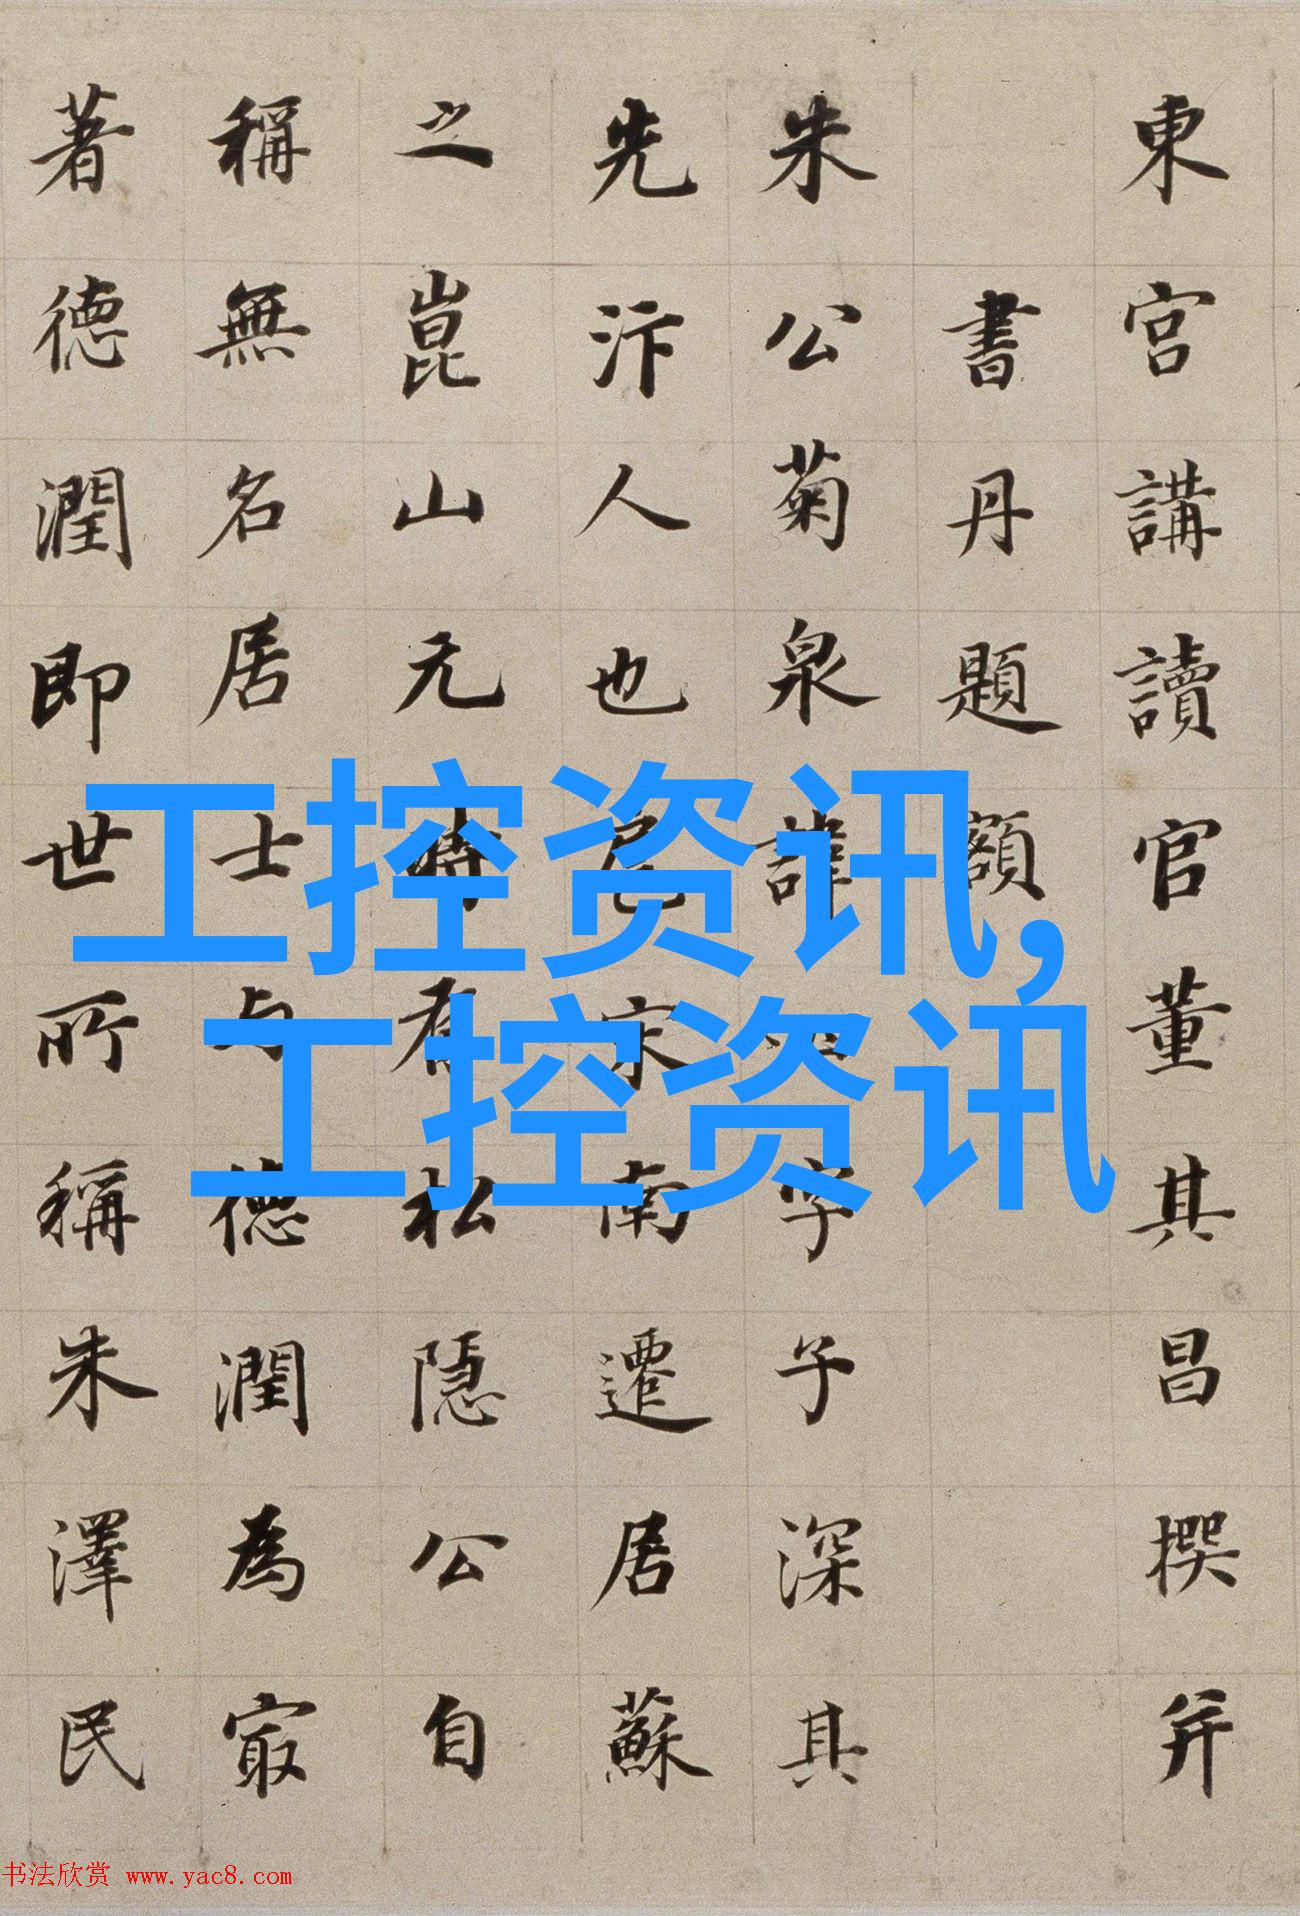 東宮講讀官董其昌撰并
書丹題額
朱公菊泉諱字子深其
先汴人也扈宋南遷居蘇
之崑山元時有私隱公自
稱無名居士与德潤為冣
著德潤即世所稱朱澤民
工控资讯,
工控资讯
书法欣赏 www.yac8.com